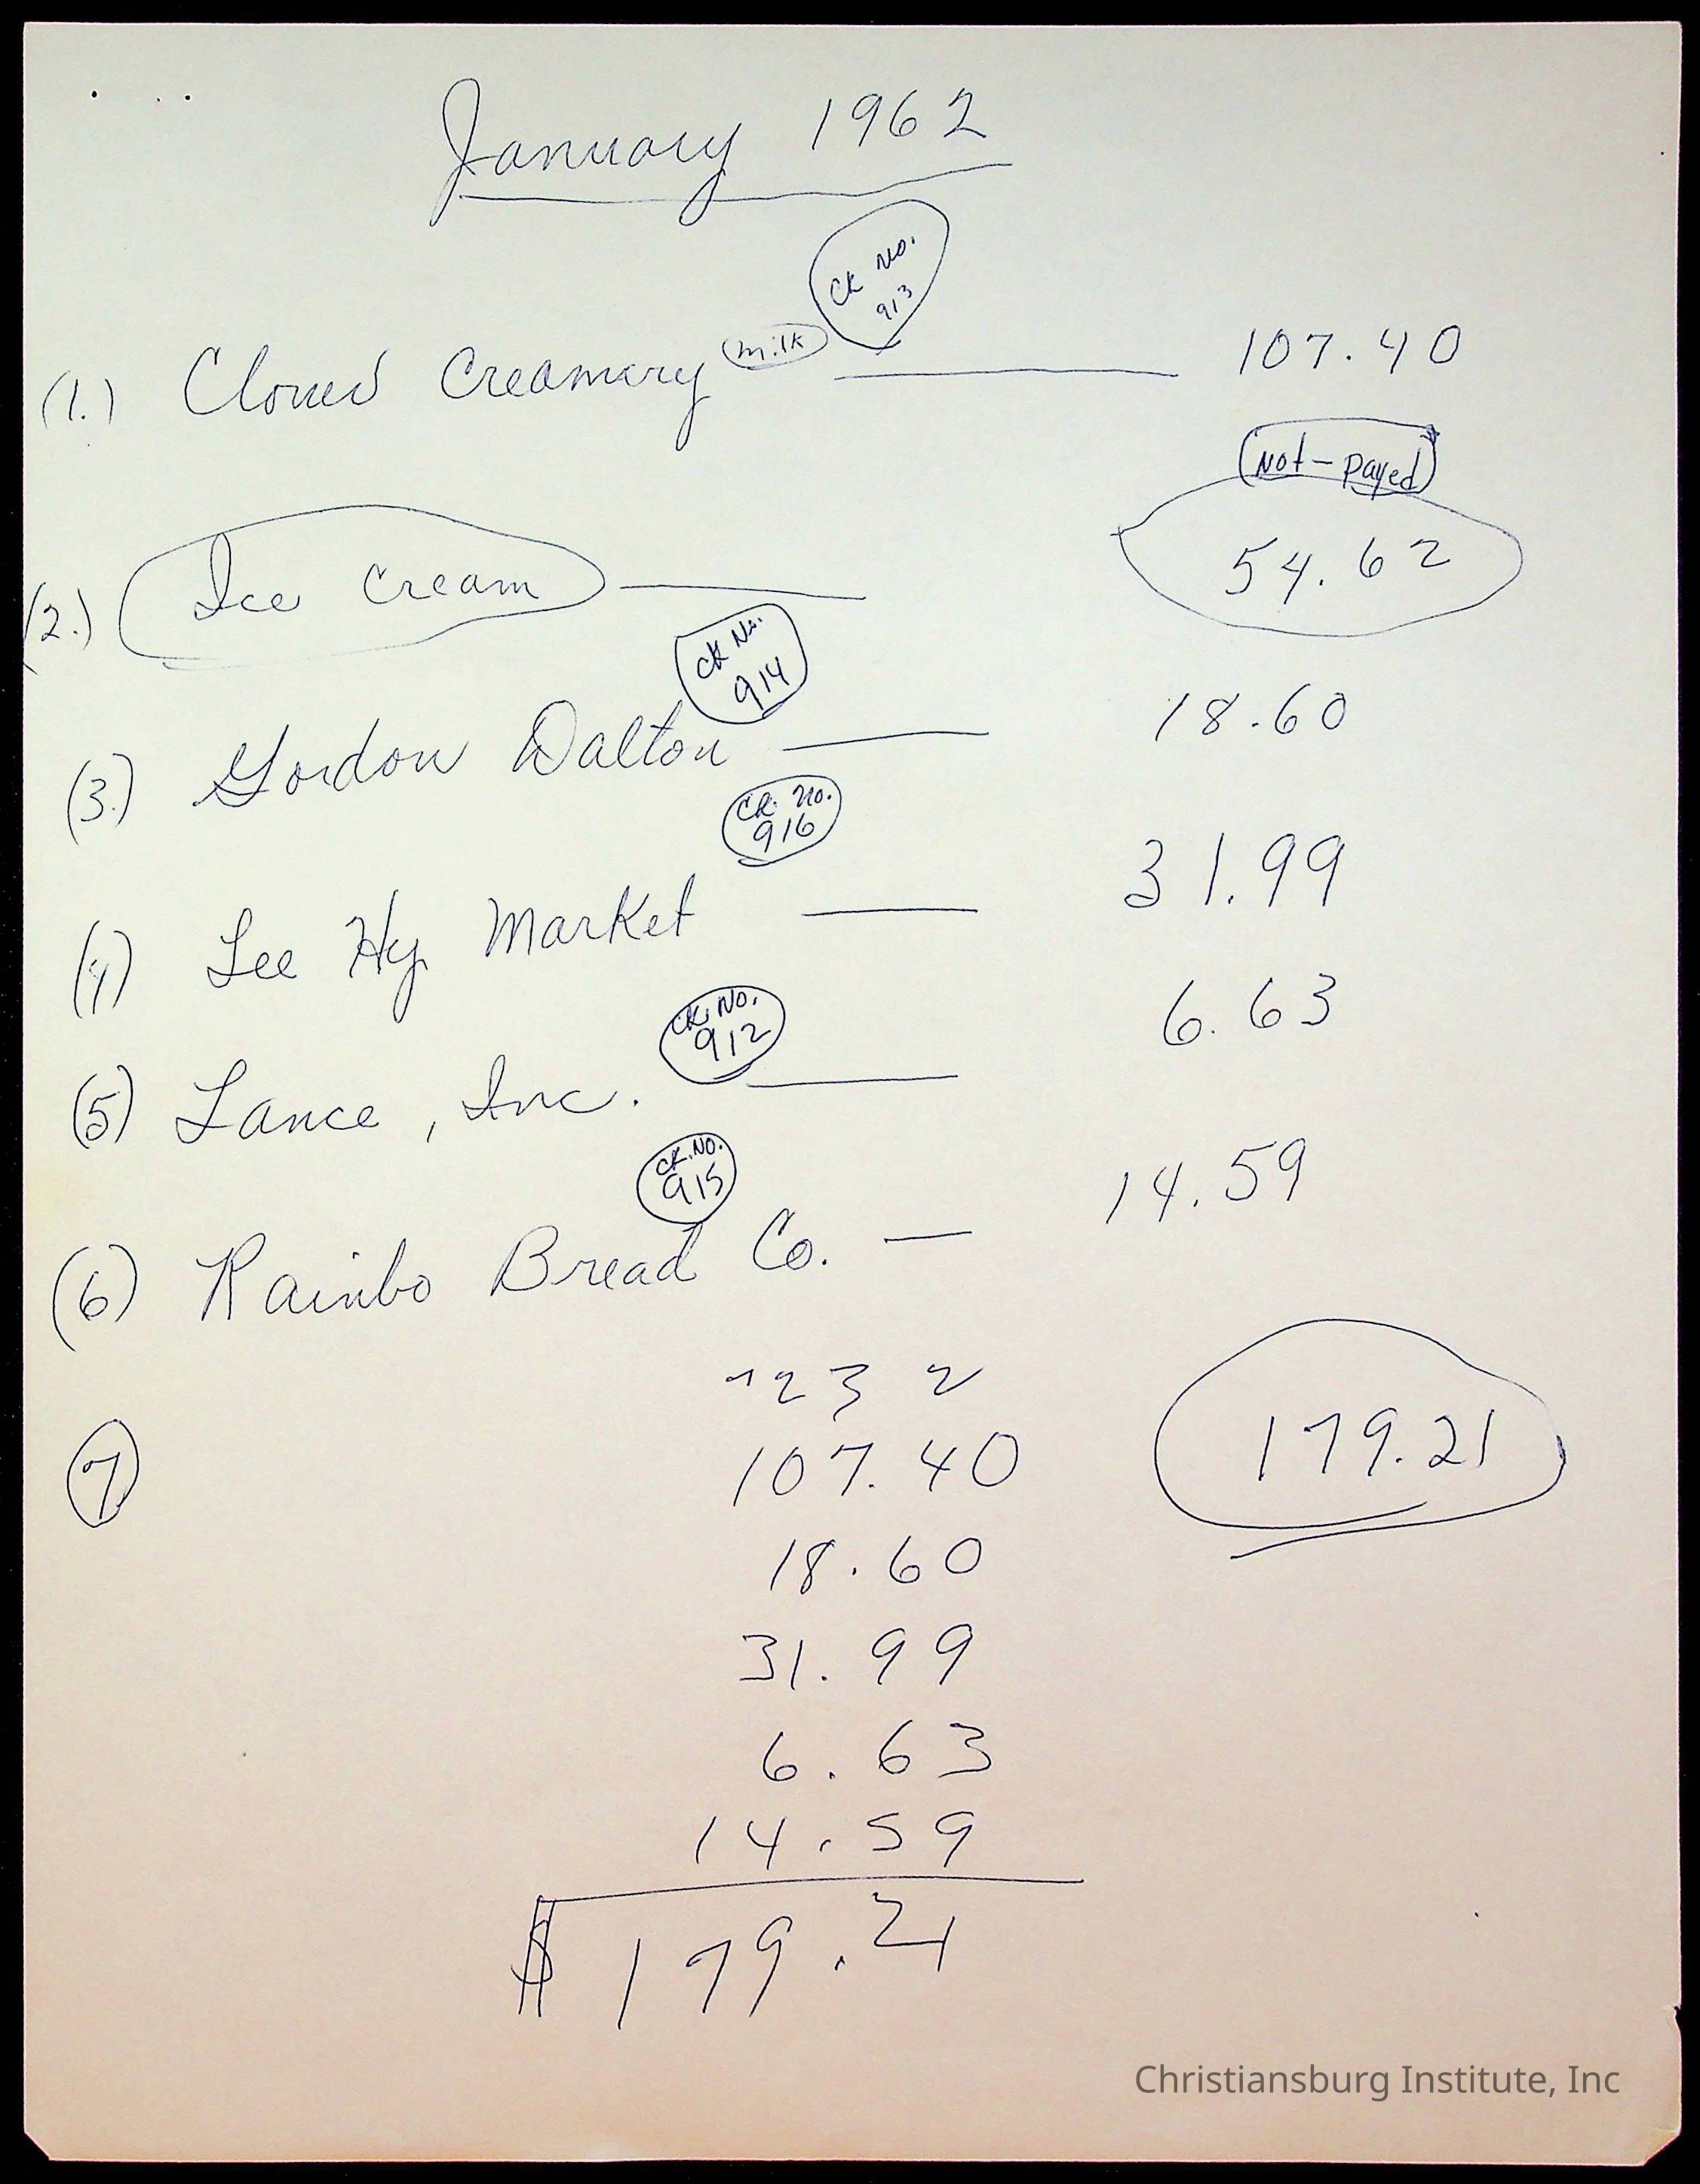 January 1962
CK No.
913
(1.) Clover Creamery milk 107.40
Not-Payed
(2.) Ice Cream 54.62
CK No.
914
(3.) Gordon Dalton 18.60
CK. No.
916
(4) Lee Hy Market 31.99
CK. No.
912
(5) Lance, Inc. 6.63
CK. NO.
915
(6) Rainbo Bread Co. 14.59
123 2
7 107.40 179.21
18.60
31.99
6.63
14.59
$ 179.21
Christiansburg Institute, Inc